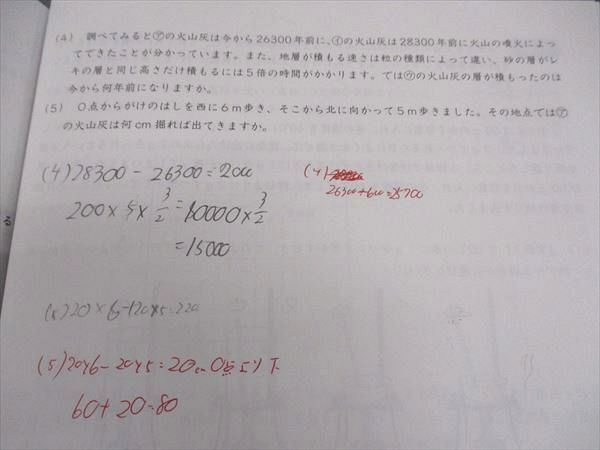 (4) 調べてみると㋐の火山灰は今から26300年前に、㋑の火山灰は28300年前に火山の噴火によっ
てできたことが分かっています。また、地層が積もる速さは粒の種類によって違い、砂の層がレ
キの層と同じ高さだけ積もるには5倍の時間がかかります。では㋒の火山灰の層が積もったのは
今から何年前になりますか。
(5) O点からがけのはしを西に6m歩き、そこから北に向かって5m歩きました。その地点では㋐
の火山灰は何cm掘れば出てきますか。
(4) 28300 − 26300 = 2000
(4)
26300+600=25700
200 × 5 × 3/2 = 10000 × 3/2
= 15000
(5) 20×6−120×5=220
(5) 20×6 − 20×5 = 20cm O点より下
60+20=80
る